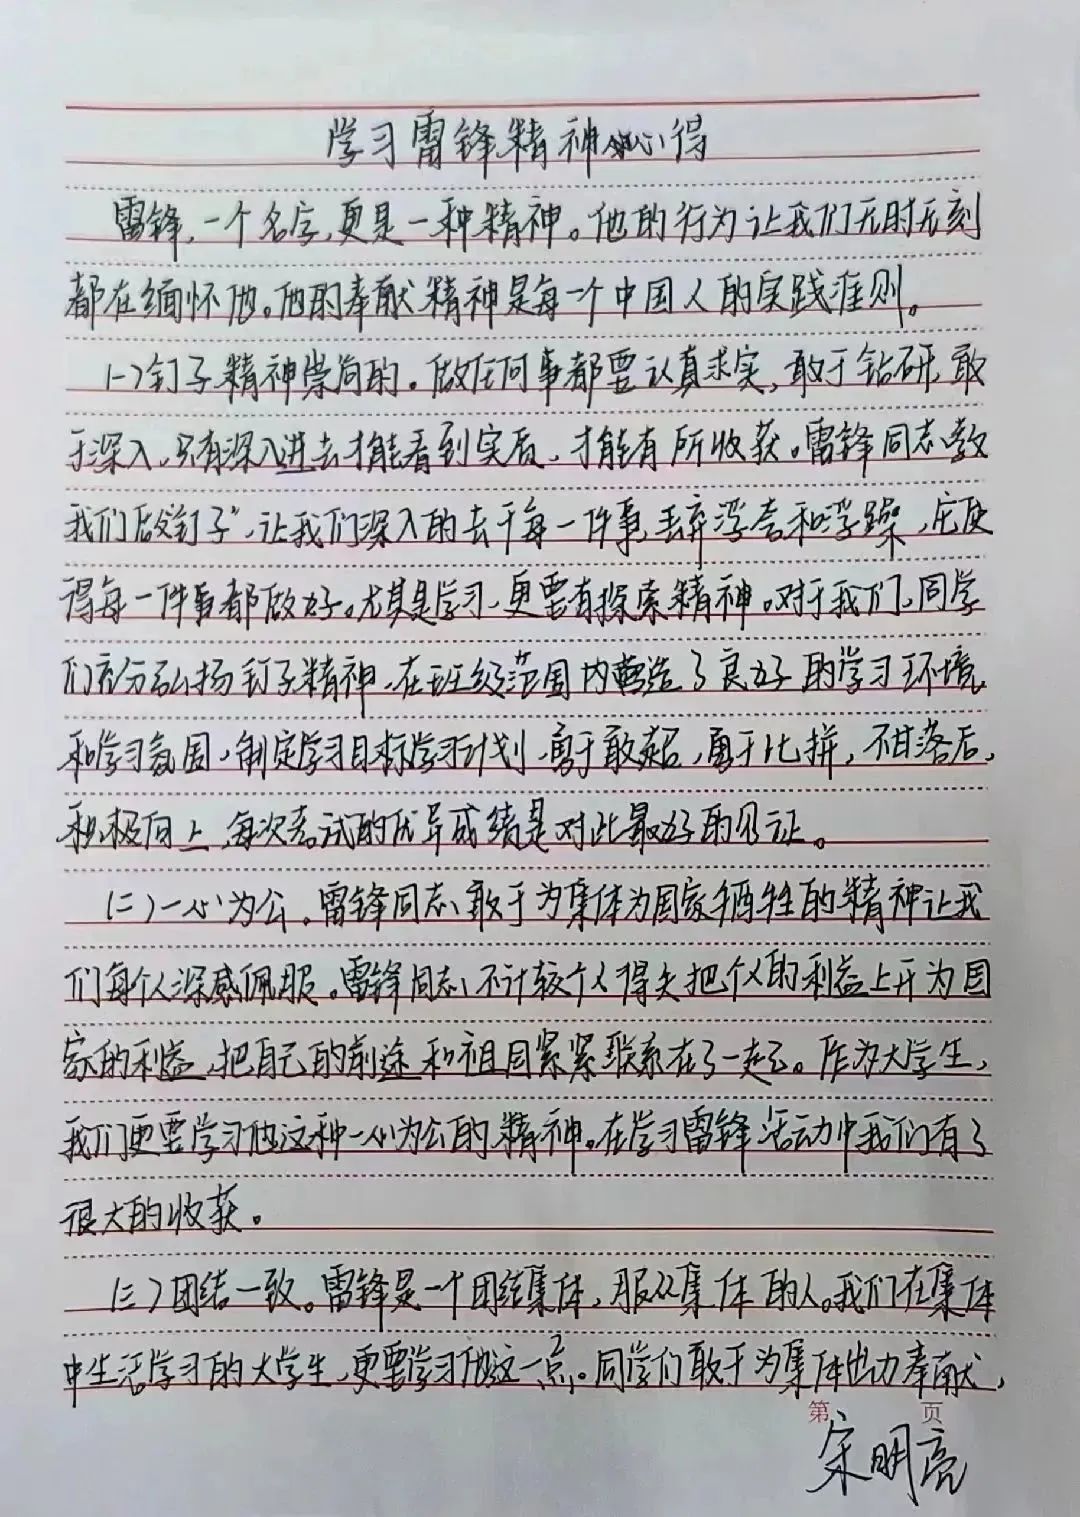 学习雷锋精神心得
雷锋,一个名字,更是一种精神。他的行为让我们无时无刻
都在缅怀他。他的奉献精神是每一个中国人的实践准则。
(一)钉子精神崇尚的。做任何事都要认真求实,敢于钻研,敢
于深入,只有深入进去才能看到实质,才能有所收获。雷锋同志教
我们做“钉子”,让我们深入的去干每一件事,丢弃浮夸和浮躁,
得每一件事都做好。尤其是学习,更要有探索精神。对于我们,同学
们充分弘扬钉子精神,在班级范围内营造了良好的学习环境
和学习氛围,制定学习目标学习计划,勇于敢超,勇于比拼,不甘落后,
积极向上,每次考试的优异成绩是对此最好的见证。
(二)一心为公。雷锋同志敢于为集体为国家牺牲的精神让我
们每个人深感佩服。雷锋同志不计较个人得失把个人的利益上升为国
家的利益,把自己的前途和祖国紧紧联系在了一起。作为大学生,
我们更要学习他这种一心为公的精神。在学习雷锋活动中我们有了
很大的收获。
(三)团结一致。雷锋是一个团结集体,服从集体的人。我们在集体
中生活学习的大学生,更要学习他这一点。同学们敢于为集体出力奉献,
第 页
宋明亮